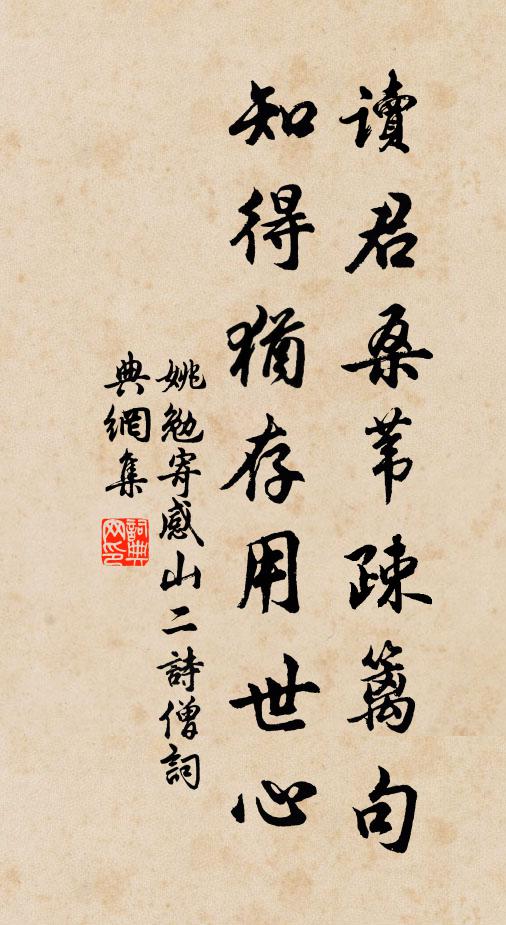 讀君桑苇疎籬句
知得猶存用世心
姚勉寄感山二詩僧詞
典網集
詞典網印